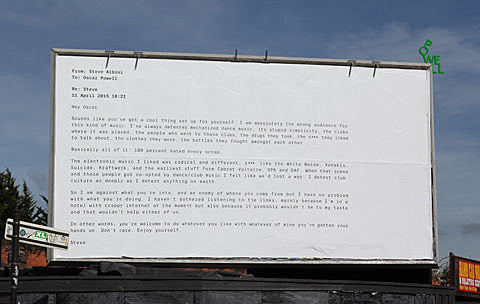 POWELL
From: Steve Albini
To: Oscar Powell
Re: Steve
11 April 2015 18:21
Hey Oscar
Sounds like you've got a cool thing set up for yourself. I am absolutely the wrong audience for
this kind of music. I've always detested mechanized dance music, its stupid simplicity, the clubs
where it was played, the people who went to those clubs, the drugs they took, the s*** they liked
to talk about, the clothes they wore, the battles they fought amongst each other
Basically all of it: 100 percent hated every scrap.
The electronic music I liked was radical and different, s*** like the White Noise, Xenakis,
Suicide, Kraftwerk, and the earliest stuff form Cabret Voltaire, SPK and DAF. When that scene
and those people got co-opted by dance/club music I felt like we'd lost a war. I detest club
culture as deeply as I detest anything on earth.
So I am against what you're into, and an enemy of where you come from but I have no problem
with what you're doing. I haven't bothered listening to the links, mainly because I'm in a
hotel with crappy internet at the moment but also because it probably wouldn't be to my taste
and that wouldn't help either of us.
In other words, you're welcome to do whatever you like with whatever of mine you've gotten your
hands on. Don't care. Enjoy yourself.
Steve